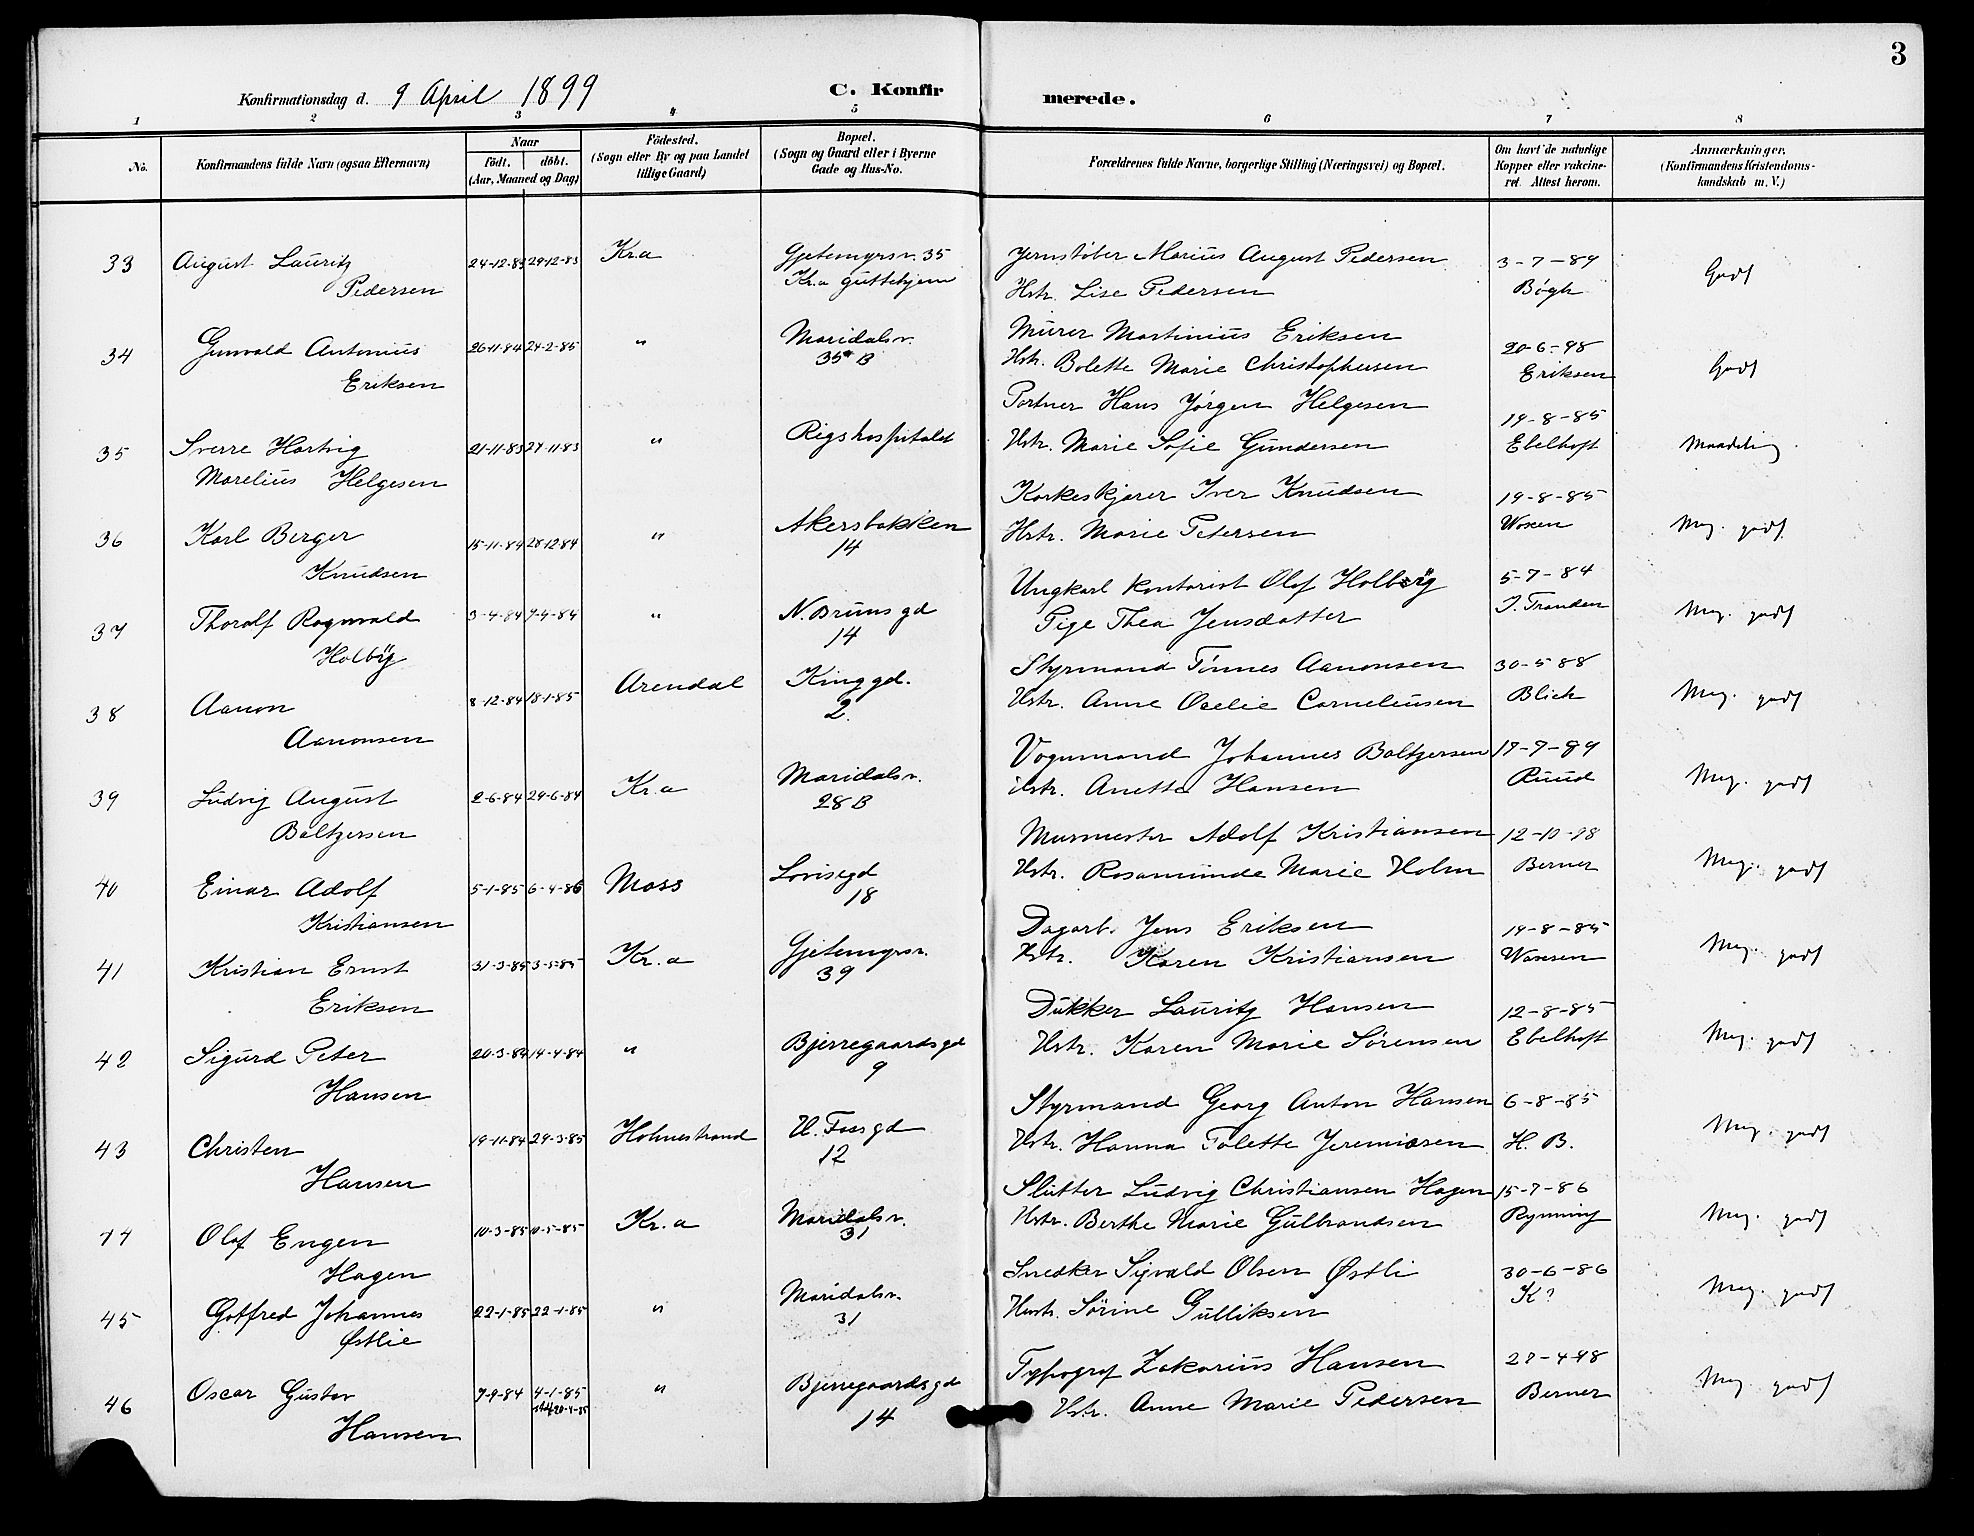 3
Konfirmationsdag d. 9 April 1899
C. Konfir merede.
1 2 3 4 5 6 7 8
No.
Konfirmandens fulde Navn (ogsaa Efternavn)
Naar
födt. döbt.
(Aar, Maaned og Dag)
Födested.
(Sogn eller By og paa Landet
tillige Gaard)
Bopæl.
(Sogn og Gaard eller i Byerne
Gade og Hus-No.
Forældrenes fulde Navne, borgerlige Stilling (Næringsvei) og Bopæl.
Om havt de naturlige
Kopper eller vakcine-
ret. Attest herom.
Anmærkninger.
(Konfirmandens Kristendoms-
kundskab m. V.)
33 August Lauritz 24-12-83 29-12-83 Kr.a Gjetemyrsv. 35 Jernstøber Marius August Pedersen 3-7-89 Godt
Pedersen Kr.a Guttehjem Hstr. Lise Pedersen Bøgh
34 Gunvald Antonius 26-11-84 24-2-85 " Maridalsv. Murer Martinius Eriksen 20-6-98 Godt
Eriksen 35 B Hstr. Bolette Marie Christophersen Eriksen
Portner Hans Jørgen Helgesen 19-8-85
35 Sverre Hartvig 21-11-83 27-11-83 " Rigshospitalet Hstr. Marie Sofie Gundersen Ebelhoft Maadelig
Marelius Helgesen
Korkeskjærer Iver Knudsen 19-8-85
36 Karl Berger 15-11-84 28-12 84 " Akersbakken Hstr. Marie Petersen Woxen Meg. godt
Knudsen 14
Ungkarl Kontorist Olof Holbÿ 5-7-84
37 Thorolf Ragnvald 3-4-84 7-4-84 " N. Bruns gd Pige Thea Jensdatter J. Tranden Meg. godt
Holbÿ 14
Styrmand Tønnes Aanonsen 30-5 88
38 Aanon 8-12-84 18-1-85 Arendal King gd. Hstr. Anne Ocelie Corneliusen Blich Meg. godt
Aanonsen 2.
Vognmand Johannes Baltzersen 17-7-89
39 Ludvig August 2-6-84 29-6-84 Kr.a Maridalsv. Hstr. Anette Hansen Ruud Meg. godt
Baltzersen 28 B
Murmester Adolf Kristiansen 12-10-98
40 Einar Adolf 5-1-85 6-4-86 Moss Lovisegd Hstr. Rosamunde Marie Holm Berner Meg. godt
Kristiansen 18
Dagarb. Jens Eriksen 19-8-85
41 Kristian Ernst 31-3-85 3-5-85 Kr.a Gjetemyrsv. Hstr. Karen Kristiansen Woxsen Meg. godt
Eriksen 39
Dukker Lauritz Hansen 12-8-85
42 Sigurd Peter 20-3-84 14-4-84 " Bjerregaardsgd Hstr. Karen Marie Sørensen Ebelhoft Meg. godt
Hansen 9
Styrmand Georg Anton Hansen 6-8-85
43 Christen 19-11-84 29-3-85 Holmestrand U. Fossgd Hstr. Hanna Tolette Jeremiasen H. B. Meg. godt
Hansen 12
Slutter Ludvig Christiansen Hagen 15-7-86
44 Olaf Engen 10-3-85 10-5-85 Kr.a Maridalsv. Hstr. Berthe Marie Gulbrandsen Rynning Meg. godt
Hagen 31
Snedker Sigvald Olsen Østli 30-6-86
45 Gotfred Johannes 22-1-85 22-1-85 " Maridalsv. Hustr. Sørine Gulliksen K? Meg. godt
Østlie 31
Typograf Zakarius Hansen 27-4-98
46 Oscar Gustav 7-9-84 4-1-85 " Bjerregaardsgd Hstr. Anne Marie Pedersen Berner Meg godt
20-4-85
Hansen 14